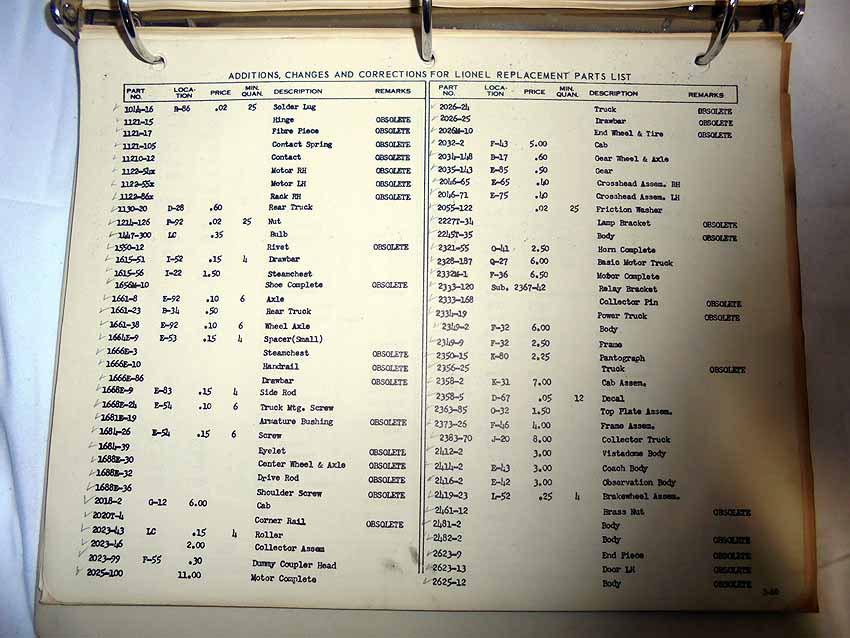 ADDITIONS, CHANGES AND CORRECTIONS FOR LIONEL REPLACEMENT PARTS LIST
PART NO. LOCA-TION PRICE MIN. QUAN. DESCRIPTION REMARKS
1014-16 B-86 .02 25 Solder Lug
1121-15 Hinge OBSOLETE
1121-17 Fibre Piece OBSOLETE
1121-105 Contact Spring OBSOLETE
11210-12 Contact OBSOLETE
1122-54x Motor RH OBSOLETE
1122-55x Motor LH OBSOLETE
1122-86x Rack RH OBSOLETE
1130-20 D-28 .60 Rear Truck
1214-126 P-92 .02 25 Nut
1447-300 LC .35 Bulb
1550-12 Rivet OBSOLETE
1615-51 I-52 .15 4 Drawbar
1615-56 I-22 1.50 Steamchest
1656M-10 Shoe Complete OBSOLETE
1661-8 E-92 .10 6 Axle
1661-23 B-34 .50 Rear Truck
1661-38 E-92 .10 6 Wheel Axle
1664E-9 E-53 .15 4 Spacer(Small)
1666E-3 Steamchest OBSOLETE
1666E-10 Handrail OBSOLETE
1666E-86 Drawbar OBSOLETE
1668E-9 E-83 .15 4 Side Rod
1668E-24 E-54 .10 6 Truck Mtg. Screw
1681E-19 Armature Bushing OBSOLETE
1684-26 E-54 .15 6 Screw
1684-39 Eyelet OBSOLETE
1688E-30 Center Wheel & Axle OBSOLETE
1688E-32 Drive Rod OBSOLETE
1688E-36 Shoulder Screw OBSOLETE
2018-2 G-12 6.00 Cab
2020T-4 Corner Rail OBSOLETE
2023-43 LC .15 4 Roller
2023-46 2.00 Collector Assem
2023-99 F-55 .30 Dummy Coupler Head
2025-100 11.00 Motor Complete
PART NO. LOCA-TION PRICE MIN. QUAN. DESCRIPTION REMARKS
2026-24 Truck OBSOLETE
2026-25 Drawbar OBSOLETE
2026M-10 End Wheel & Tire OBSOLETE
2032-2 F-43 5.00 Cab
2034-148 B-17 .60 Gear Wheel & Axle
2035-143 E-85 .50 Gear
2046-65 E-65 .40 Crosshead Assem. RH
2046-71 E-75 .40 Crosshead Assem. LH
2055-122 .02 25 Friction Washer
2227T-34 Lamp Bracket OBSOLETE
2245T-35 Body OBSOLETE
2321-55 O-41 2.50 Horn Complete
2328-187 Q-27 6.00 Basic Motor Truck
2332M-1 F-36 6.50 Motor Complete
2333-120 Sub. 2367-42 Relay Bracket
2333-168 Collector Pin OBSOLETE
2334-19 Power Truck OBSOLETE
2349-2 F-32 6.00 Body
2349-9 F-32 2.50 Frame
2350-15 K-80 2.25 Pantograph
2356-25 Truck OBSOLETE
2358-2 K-31 7.00 Cab Assem.
2358-5 D-67 .05 12 Decal
2363-85 O-32 1.50 Top Plate Assem.
2373-26 F-46 4.00 Frame Assem.
2383-70 J-20 8.00 Collector Truck
2412-2 3.00 Vistadome Body
2414-2 E-43 3.00 Coach Body
2416-2 E-42 3.00 Observation Body
2419-23 L-52 .25 4 Brakewheel Assem.
2461-12 Brass Nut OBSOLETE
2481-2 Body
2482-2 Body OBSOLETE
2623-9 End Piece OBSOLETE
2623-13 Door LH OBSOLETE
2625-12 Body OBSOLETE